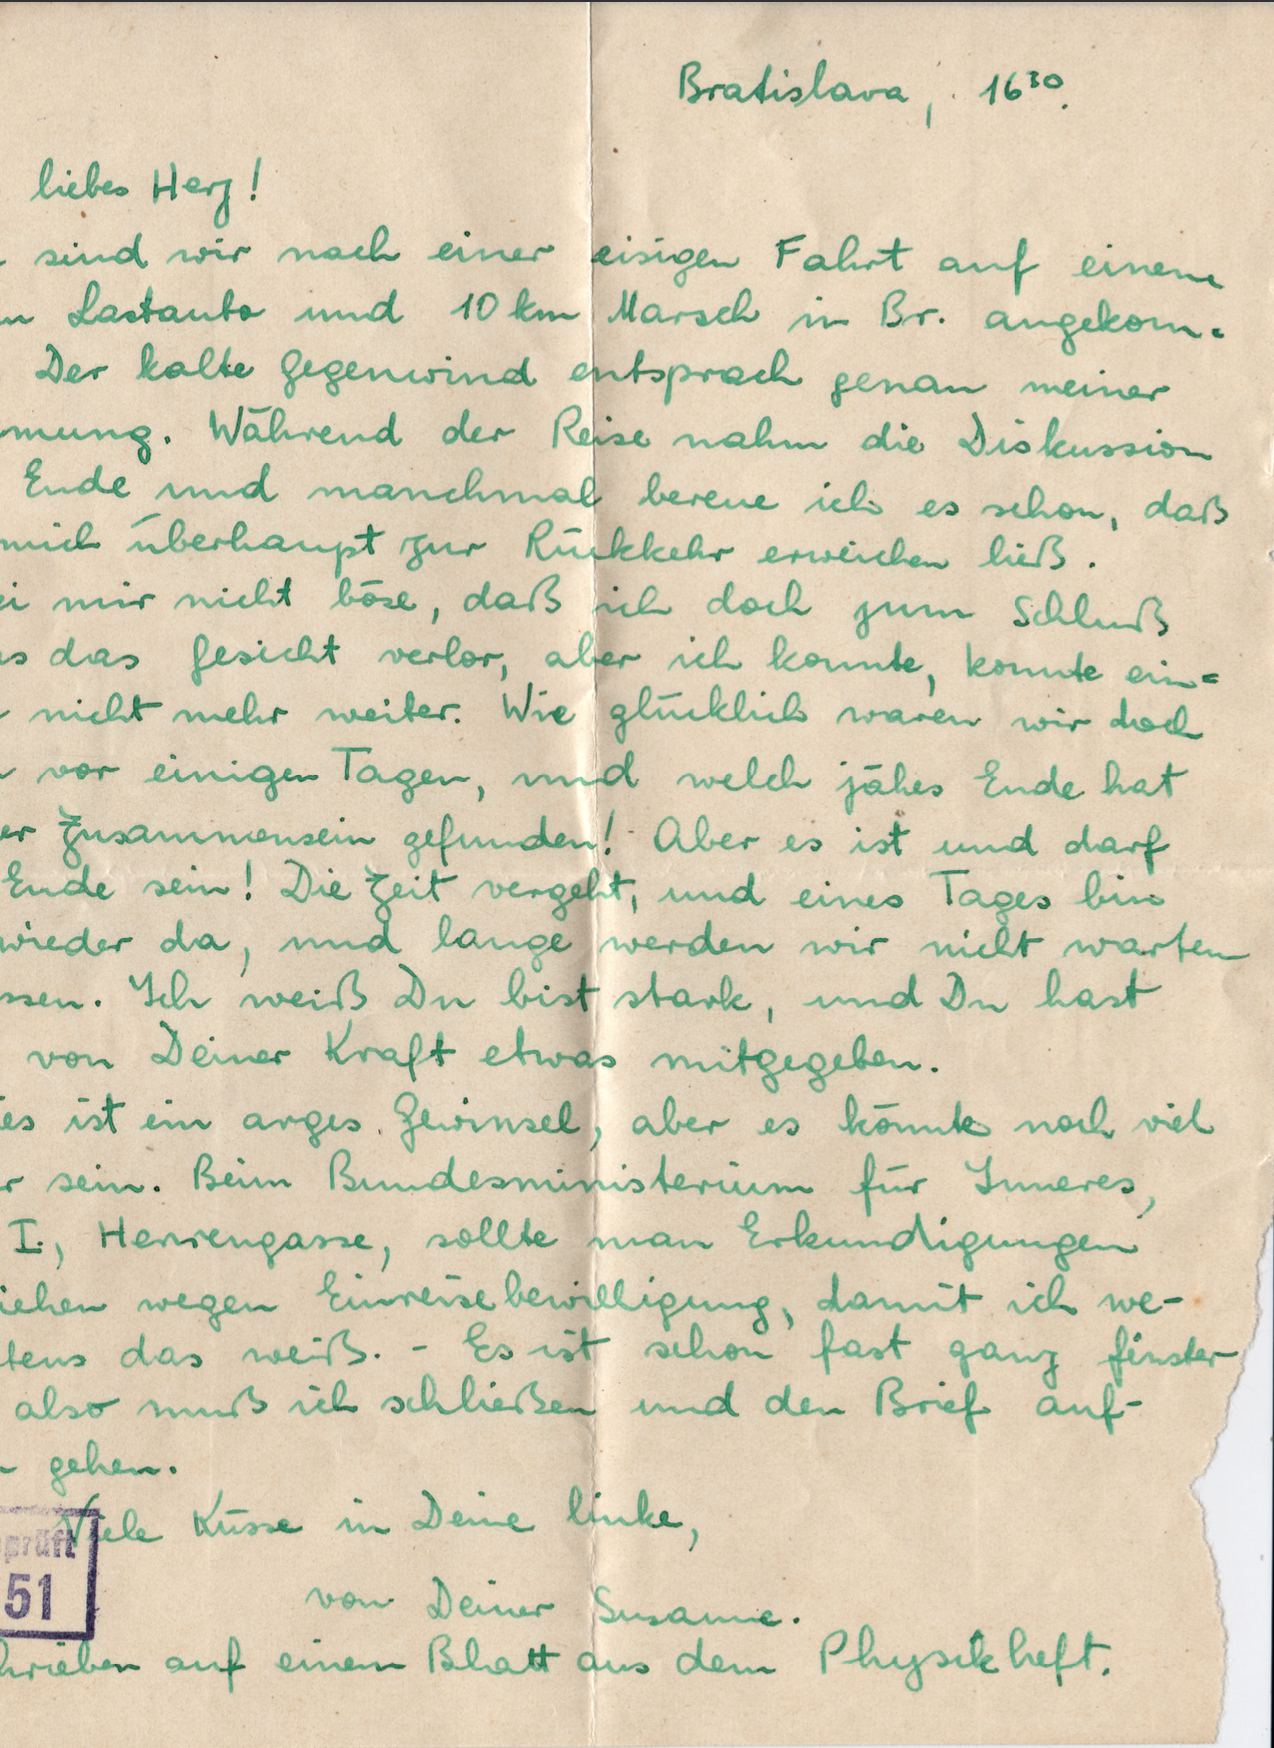 Bratislava, 16³⁰.
liebes Herz!
sind wir nach einer eisigen Fahrt auf einem
n Lastauto und 10 km Marsch in Br. angekom=
Der kalte Gegenwind entsprach genau meiner
mung. Während der Reise nahm die Diskussion
Ende und manchmal bereue ich es schon, daß
mich überhaupt zur Rückkehr erweichen ließ.
ei mir nicht böse, daß ich doch zum Schluß
as das Gesicht verlor, aber ich konnte, konnte ein=
nicht mehr weiter. Wie glücklich waren wir doch
vor einigen Tagen, und welch jähes Ende hat
er Zusammensein gefunden! Aber es ist und darf
Ende sein! Die Zeit vergeht, und eines Tages bin
wieder da, und lange werden wir nicht warten
ssen. Ich weiß Du bist stark, und Du hast
von Deiner Kraft etwas mitgegeben.
ies ist ein arges Gewinsel, aber es könnte noch viel
r sein. Beim Bundesministerium für Inneres,
I., Herrengasse, sollte man Erkundigungen
iehen wegen Einreisebewilligung, damit ich we-
tens das weiß. - Es ist schon fast ganz finster
also muß ich schließen und den Brief auf-
n gehen.
Viele Küsse in Deine linke,
prüft
51
von Deiner Susanne.
hrieben auf einem Blatt aus dem Physikheft.